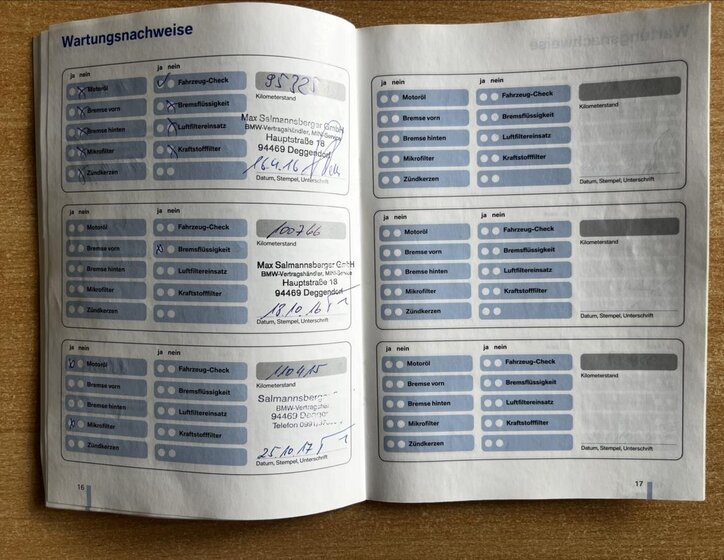 Wartungsnachweise
ja nein
ja nein
Motoröl
Bremse vorn
Bremse hinten
Mikrofilter
Zündkerzen
Fahrzeug-Check
Bremsflüssigkeit
Luftfiltereinsatz
Kraftstofffilter
95325
Kilometerstand
Max Salmannsberger GmbH
BMW-Vertragshändler, MINI-Service
Hauptstraße 18
94469 Deggendorf
16.4.16
Datum, Stempel, Unterschrift
ja nein
ja nein
Motoröl
Bremse vorn
Bremse hinten
Mikrofilter
Zündkerzen
Fahrzeug-Check
Bremsflüssigkeit
Luftfiltereinsatz
Kraftstofffilter
100766
Kilometerstand
Max Salmannsberger GmbH
BMW-Vertragshändler, MINI-Service
Hauptstraße 18
94469 Deggendorf
18.10.16
Datum, Stempel, Unterschrift
ja nein
ja nein
Motoröl
Bremse vorn
Bremse hinten
Mikrofilter
Zündkerzen
Fahrzeug-Check
Bremsflüssigkeit
Luftfiltereinsatz
Kraftstofffilter
110415
Kilometerstand
Salmannsberger
94469
Telefon
25.10.17
Datum, Stempel, Unterschrift
16
ja nein
ja nein
Motoröl
Bremse vorn
Bremse hinten
Mikrofilter
Zündkerzen
Fahrzeug-Check
Bremsflüssigkeit
Luftfiltereinsatz
Kraftstofffilter
Kilometerstand
Datum, Stempel, Unterschrift
ja nein
ja nein
Motoröl
Bremse vorn
Bremse hinten
Mikrofilter
Zündkerzen
Fahrzeug-Check
Bremsflüssigkeit
Luftfiltereinsatz
Kraftstofffilter
Kilometerstand
Datum, Stempel, Unterschrift
ja nein
ja nein
Motoröl
Bremse vorn
Bremse hinten
Mikrofilter
Zündkerzen
Fahrzeug-Check
Bremsflüssigkeit
Luftfiltereinsatz
Kraftstofffilter
Kilometerstand
Datum, Stempel, Unterschrift
17